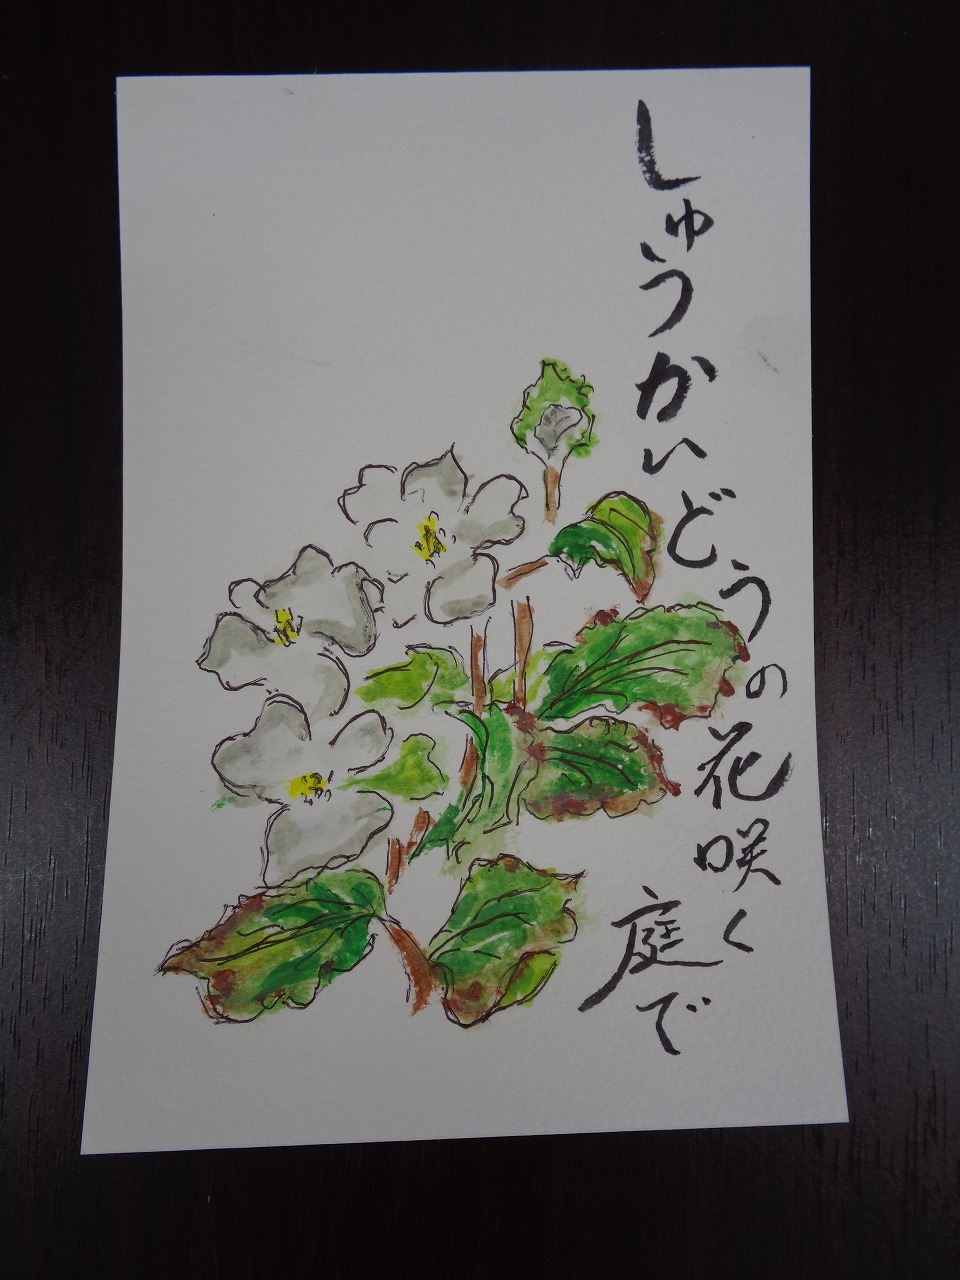 しゅうかいどうの花咲く
庭で